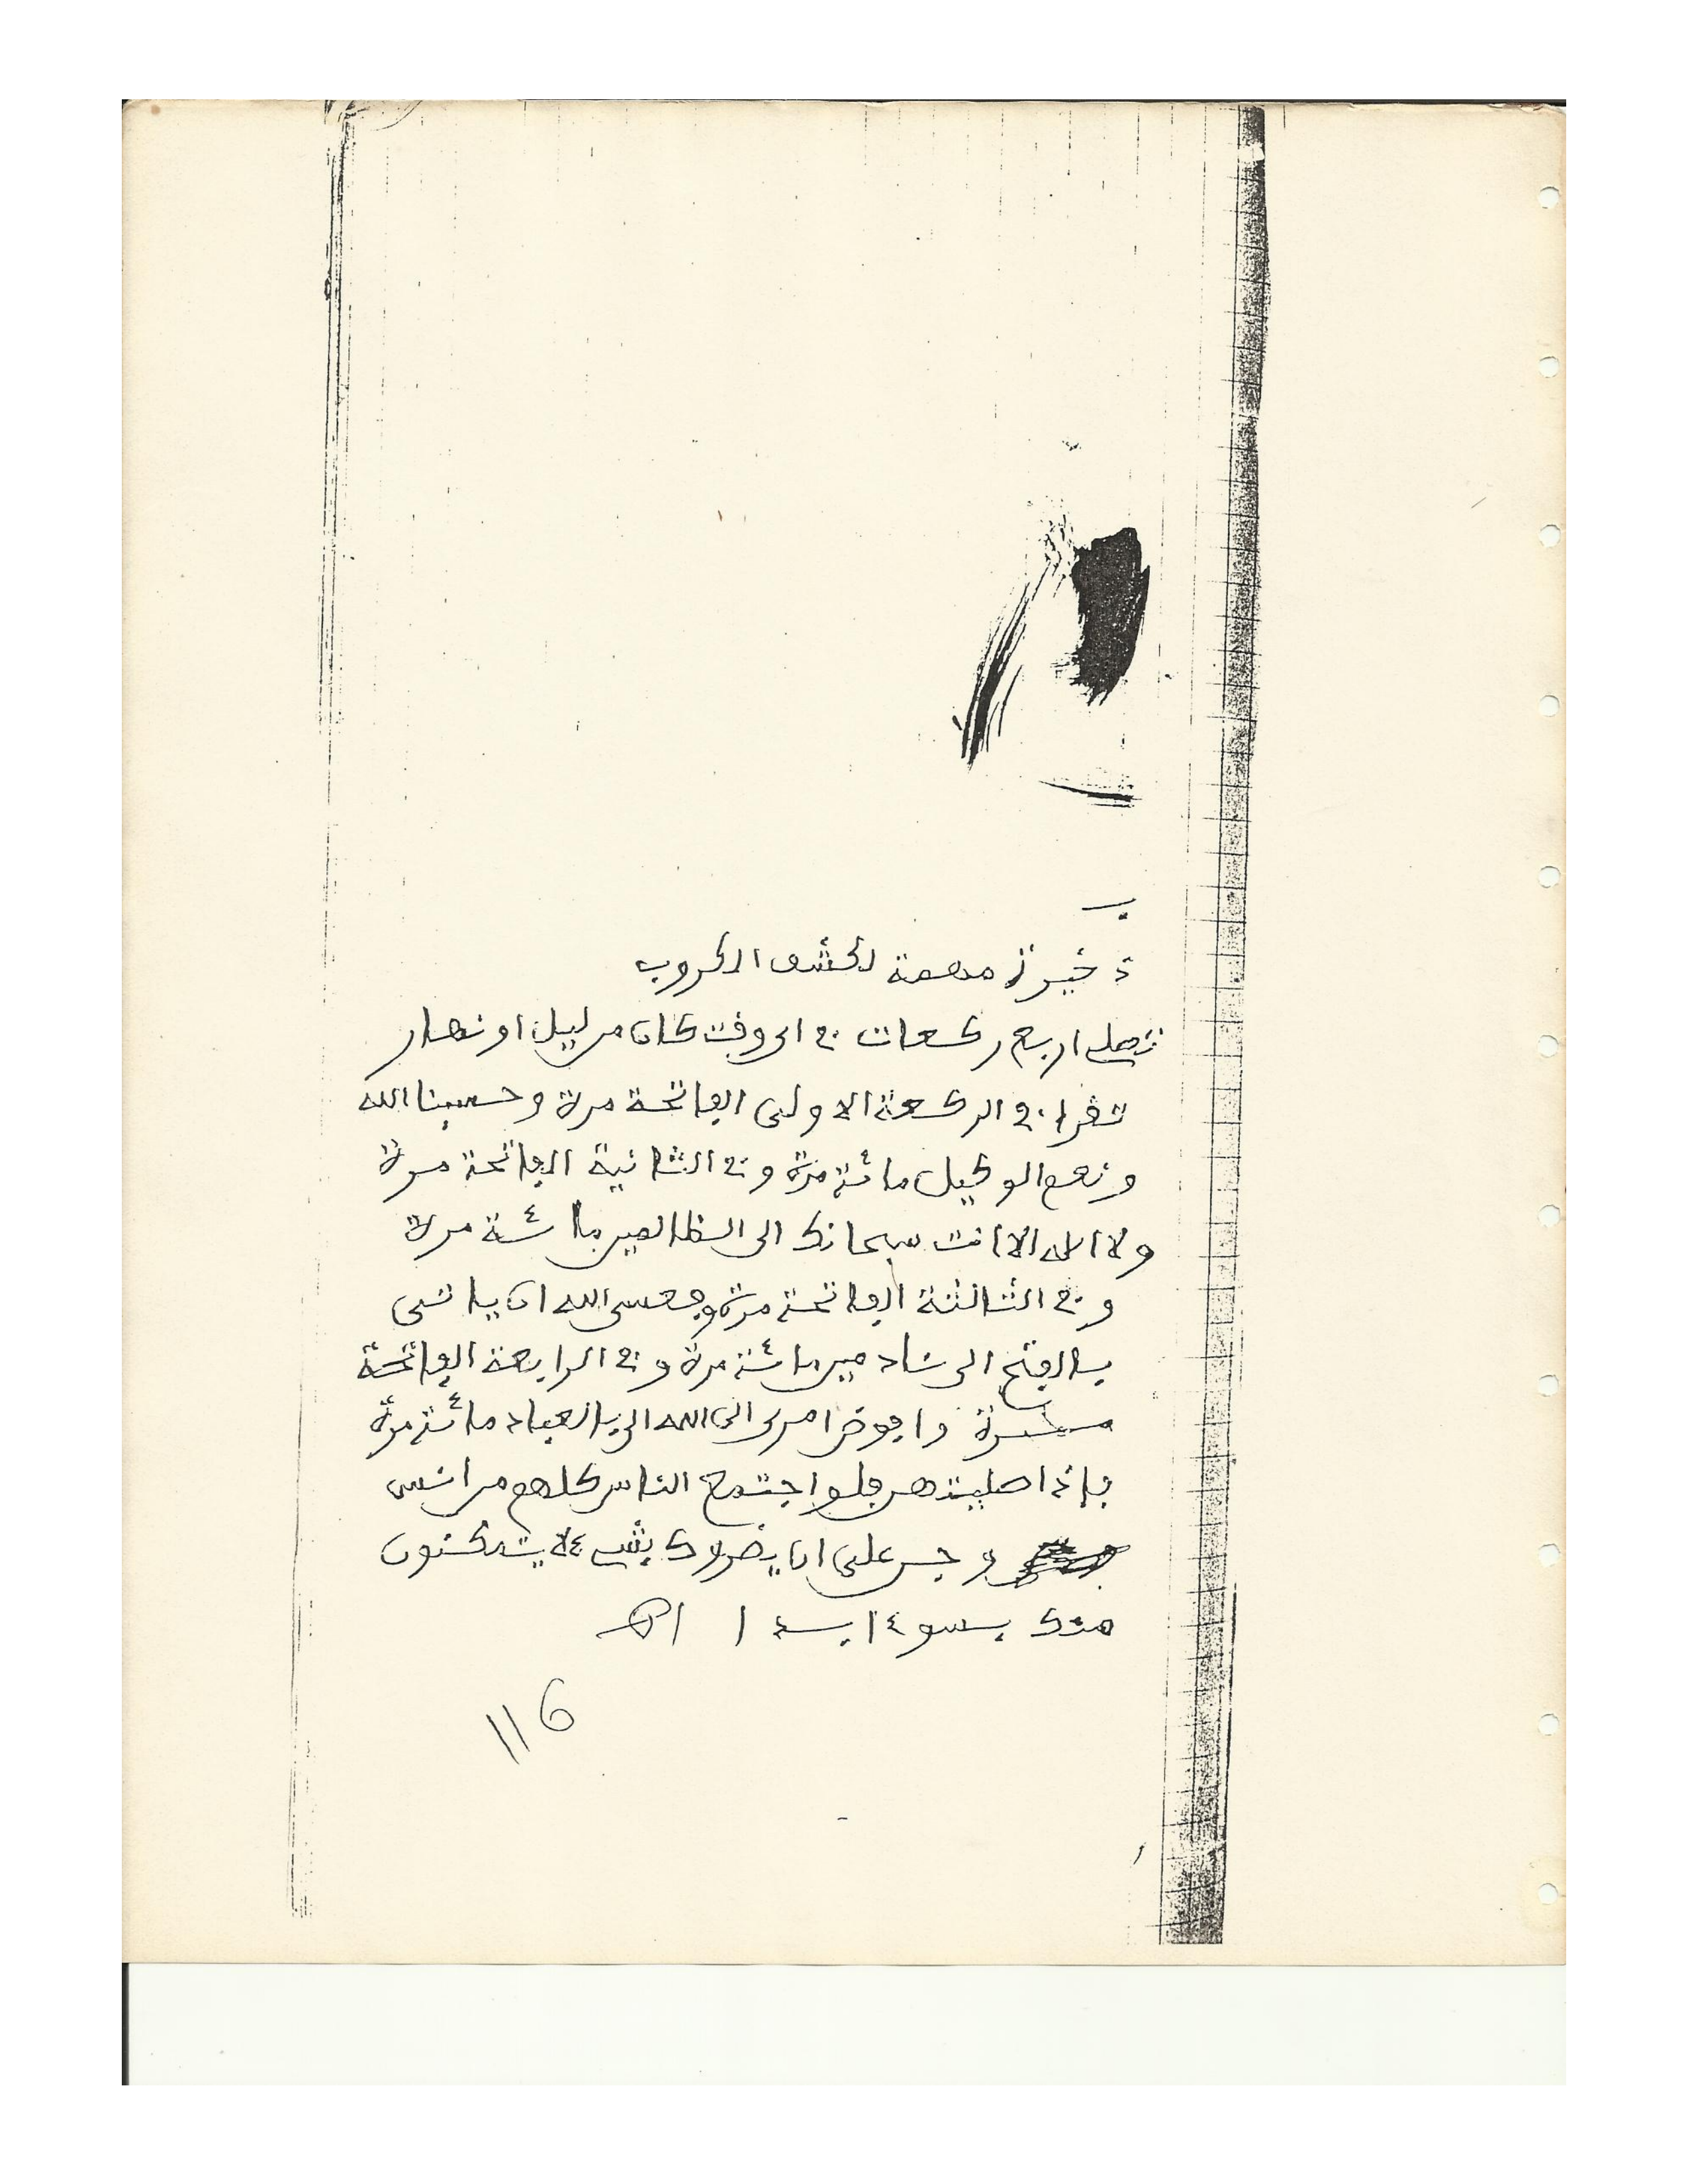 ذخيرة مهمة لكشف الكروب
تصلي اربع ركعات في اي وقت كان من ليل او نهار
تقرا في الركعة الاولى الفاتحة مرة وحسبنا الله
ونعم الوكيل مائة مرة وفي الثانية الفاتحة مرة
ولا اله الا انت سبحانك الى الظالمين مائة مرة
وفي الثالثة الفاتحة مرة وفعسى الله ان ياتي
بالفتح الى نادمين مائة مرة وفي الرابعة الفاتحة
مرة وافوض امري الى الله الى بالعباد مائة مرة
فإذا صليتهن فلو اجتمع الناس كلهم من انس
وجن على ان يضروك بشيء لا يتمكنون
منك بسوء ابدا اهـ
116